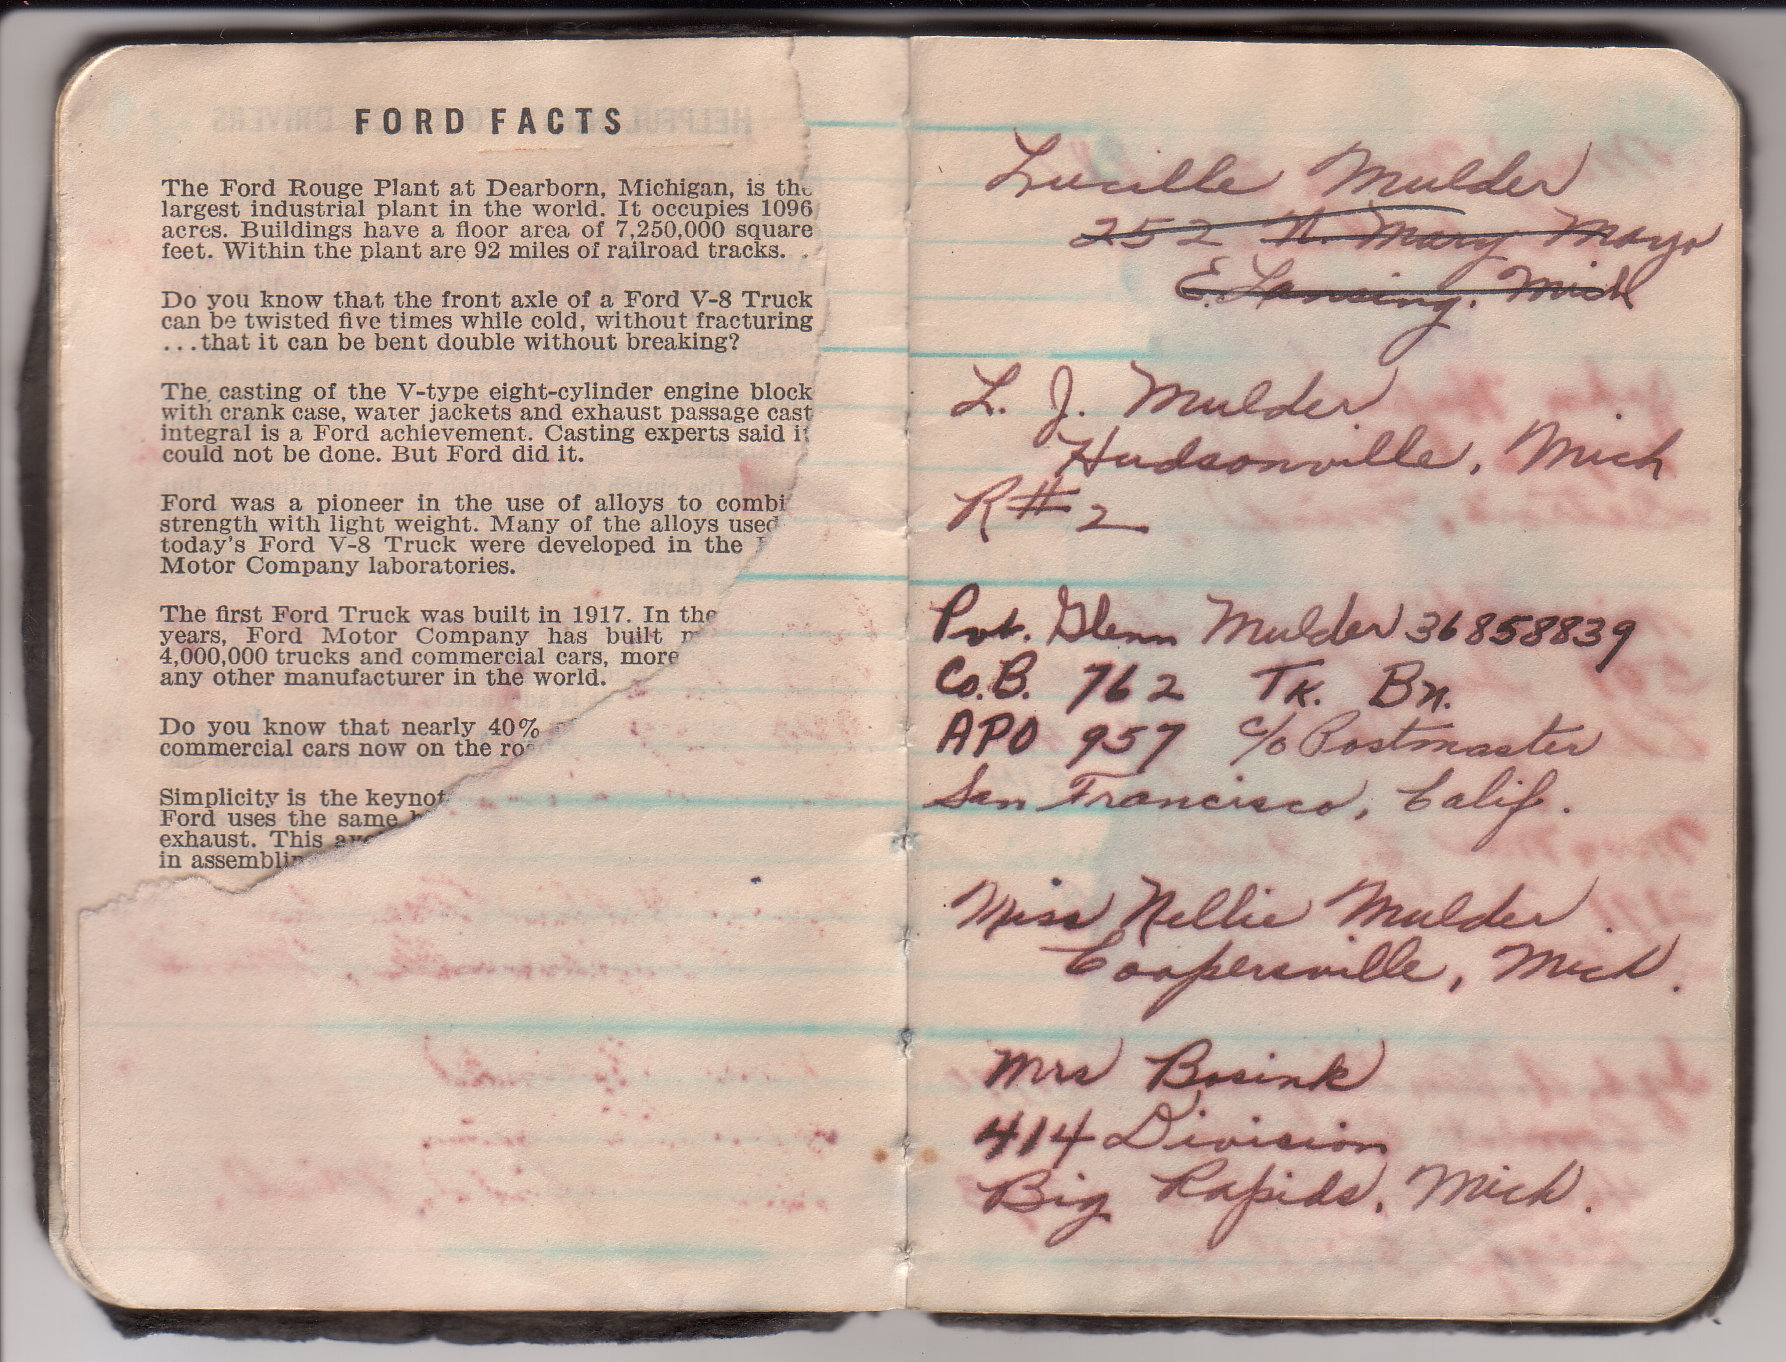 FORD FACTS
The Ford Rouge Plant at Dearborn, Michigan, is the
largest industrial plant in the world. It occupies 1096
acres. Buildings have a floor area of 7,250,000 square
feet. Within the plant are 92 miles of railroad tracks. .
Do you know that the front axle of a Ford V-8 Truck
can be twisted five times while cold, without fracturing
...that it can be bent double without breaking?
The casting of the V-type eight-cylinder engine block
with crank case, water jackets and exhaust passage cast
integral is a Ford achievement. Casting experts said it
could not be done. But Ford did it.
Ford was a pioneer in the use of alloys to combi
strength with light weight. Many of the alloys used
today's Ford V-8 Truck were developed in the
Motor Company laboratories.
The first Ford Truck was built in 1917. In the
years, Ford Motor Company has built
4,000,000 trucks and commercial cars, more
any other manufacturer in the world.
Do you know that nearly 40%
commercial cars now on the
Simplicity is the keynot
Ford uses the same
exhaust. This
in assemblin
Lucille Mulder
252 N. Mary Mayo
E. Lansing, Mich
L. J. Mulder
Hudsonville, Mich
R#2
Pvt. Glenn Mulder 36858839
Co. B. 762 Tk. Bn.
APO 957 c/o Postmaster
San Francisco, Calif.
Miss Nellie Mulder
Coopersville, Mich.
Mrs Bosink
414 Division
Big Rapids, Mich.